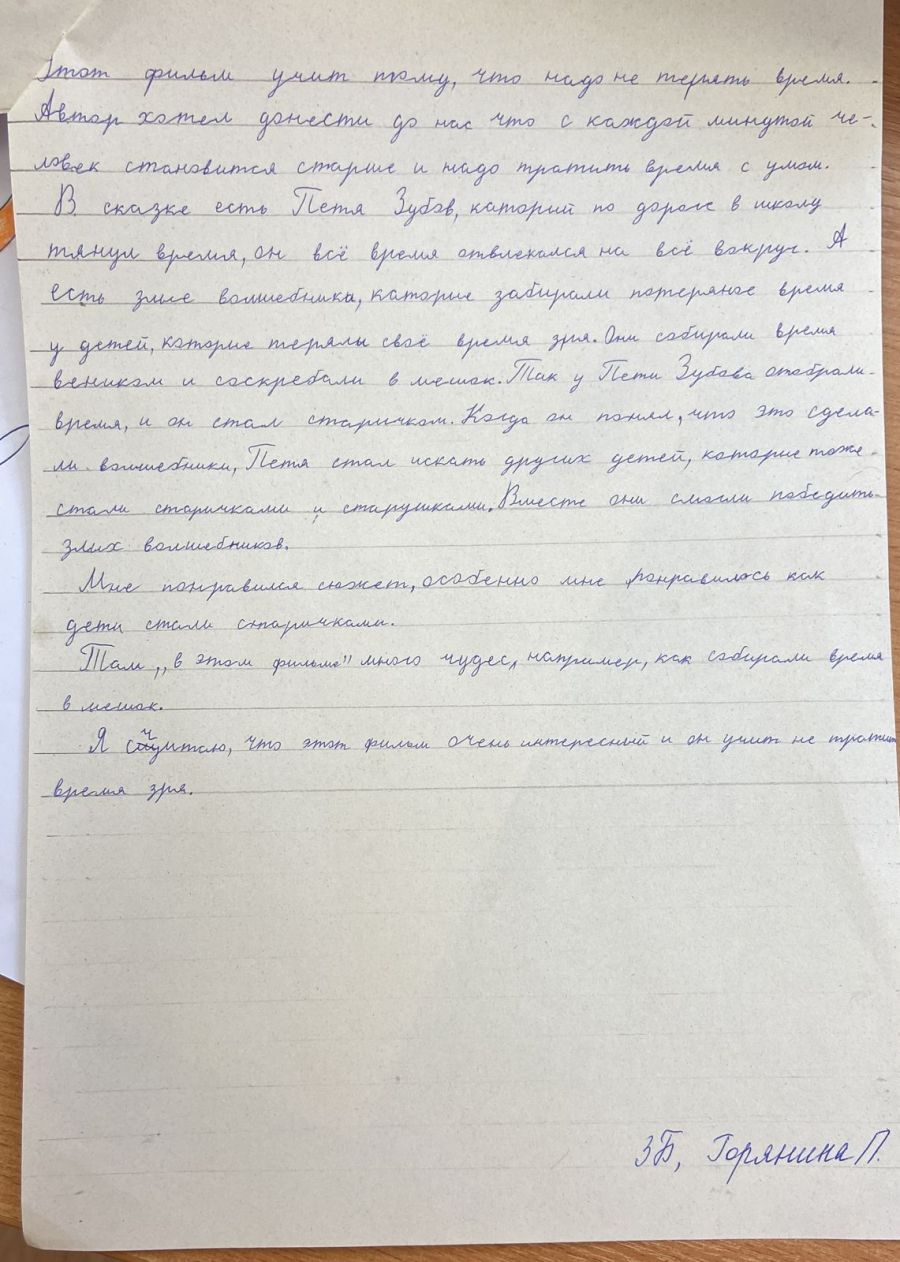 Этот фильм учит тому, что надо не терять время.
Автор хотел донести до нас что с каждой минутой че-
ловек становится старше и надо тратить время с умом.
В сказке есть Петя Зубов, каторий по дороге в школу
тянул время, он всё время отвлекался на всё вокруг. А
есть злие волшебники, каторие забирали потеряное время
у детей, которие терялы своё время зря. Они собирали время
веником и соскребали в мешок. Так у Пети Зубова отобрали
время, и он стал старичком. Когда он понял, что это сдела-
ли волшебники, Петя стал искать других детей, каторие тоже
стали старичками и старушками. Вместе они смогли победить
злих волшебников.
Мне понравился сюжет, особенно мне понравилось как
дети стали старичками.
Там „в этом фильме" много чудес, например, как собирали время
в мешок.
Я считаю, что этот фильм очень интересный и он учит не тратить
время зря.
3Б, Горянина П.